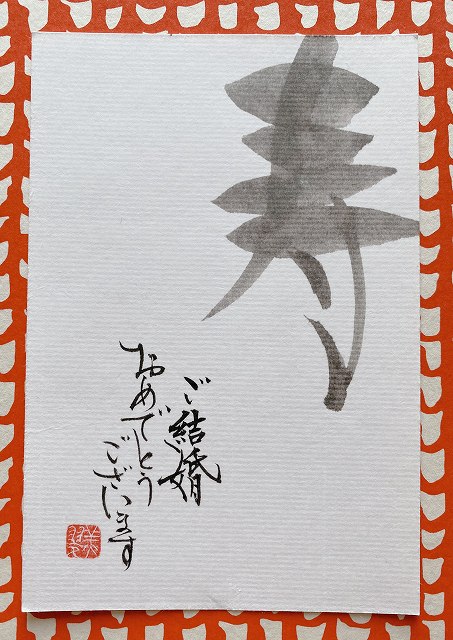 寿
ご結婚
おめでとう
ございます